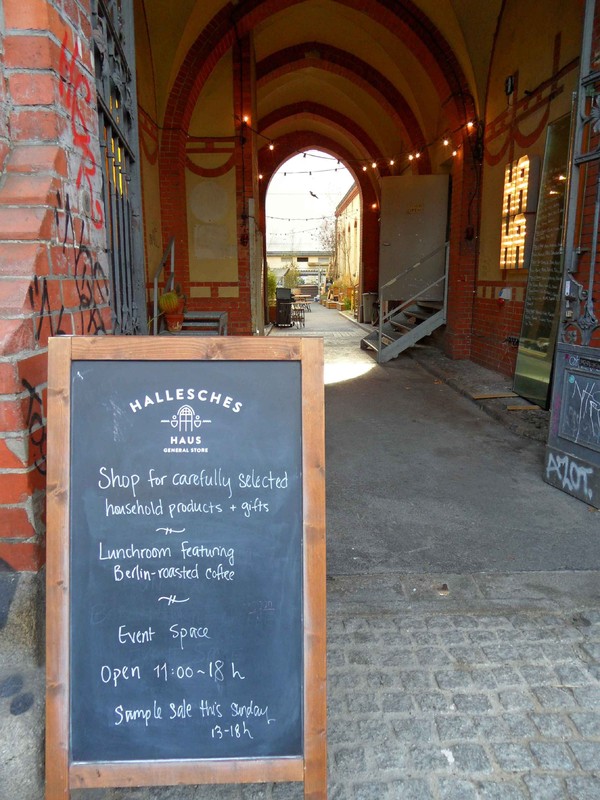 HALLESCHES
HAUS
GENERAL STORE
Shop for carefully selected
household products + gifts
Lunchroom featuring
Berlin-roasted coffee
Event Space
Open 11:00~18 h
Sample Sale this Sunday
13-18h